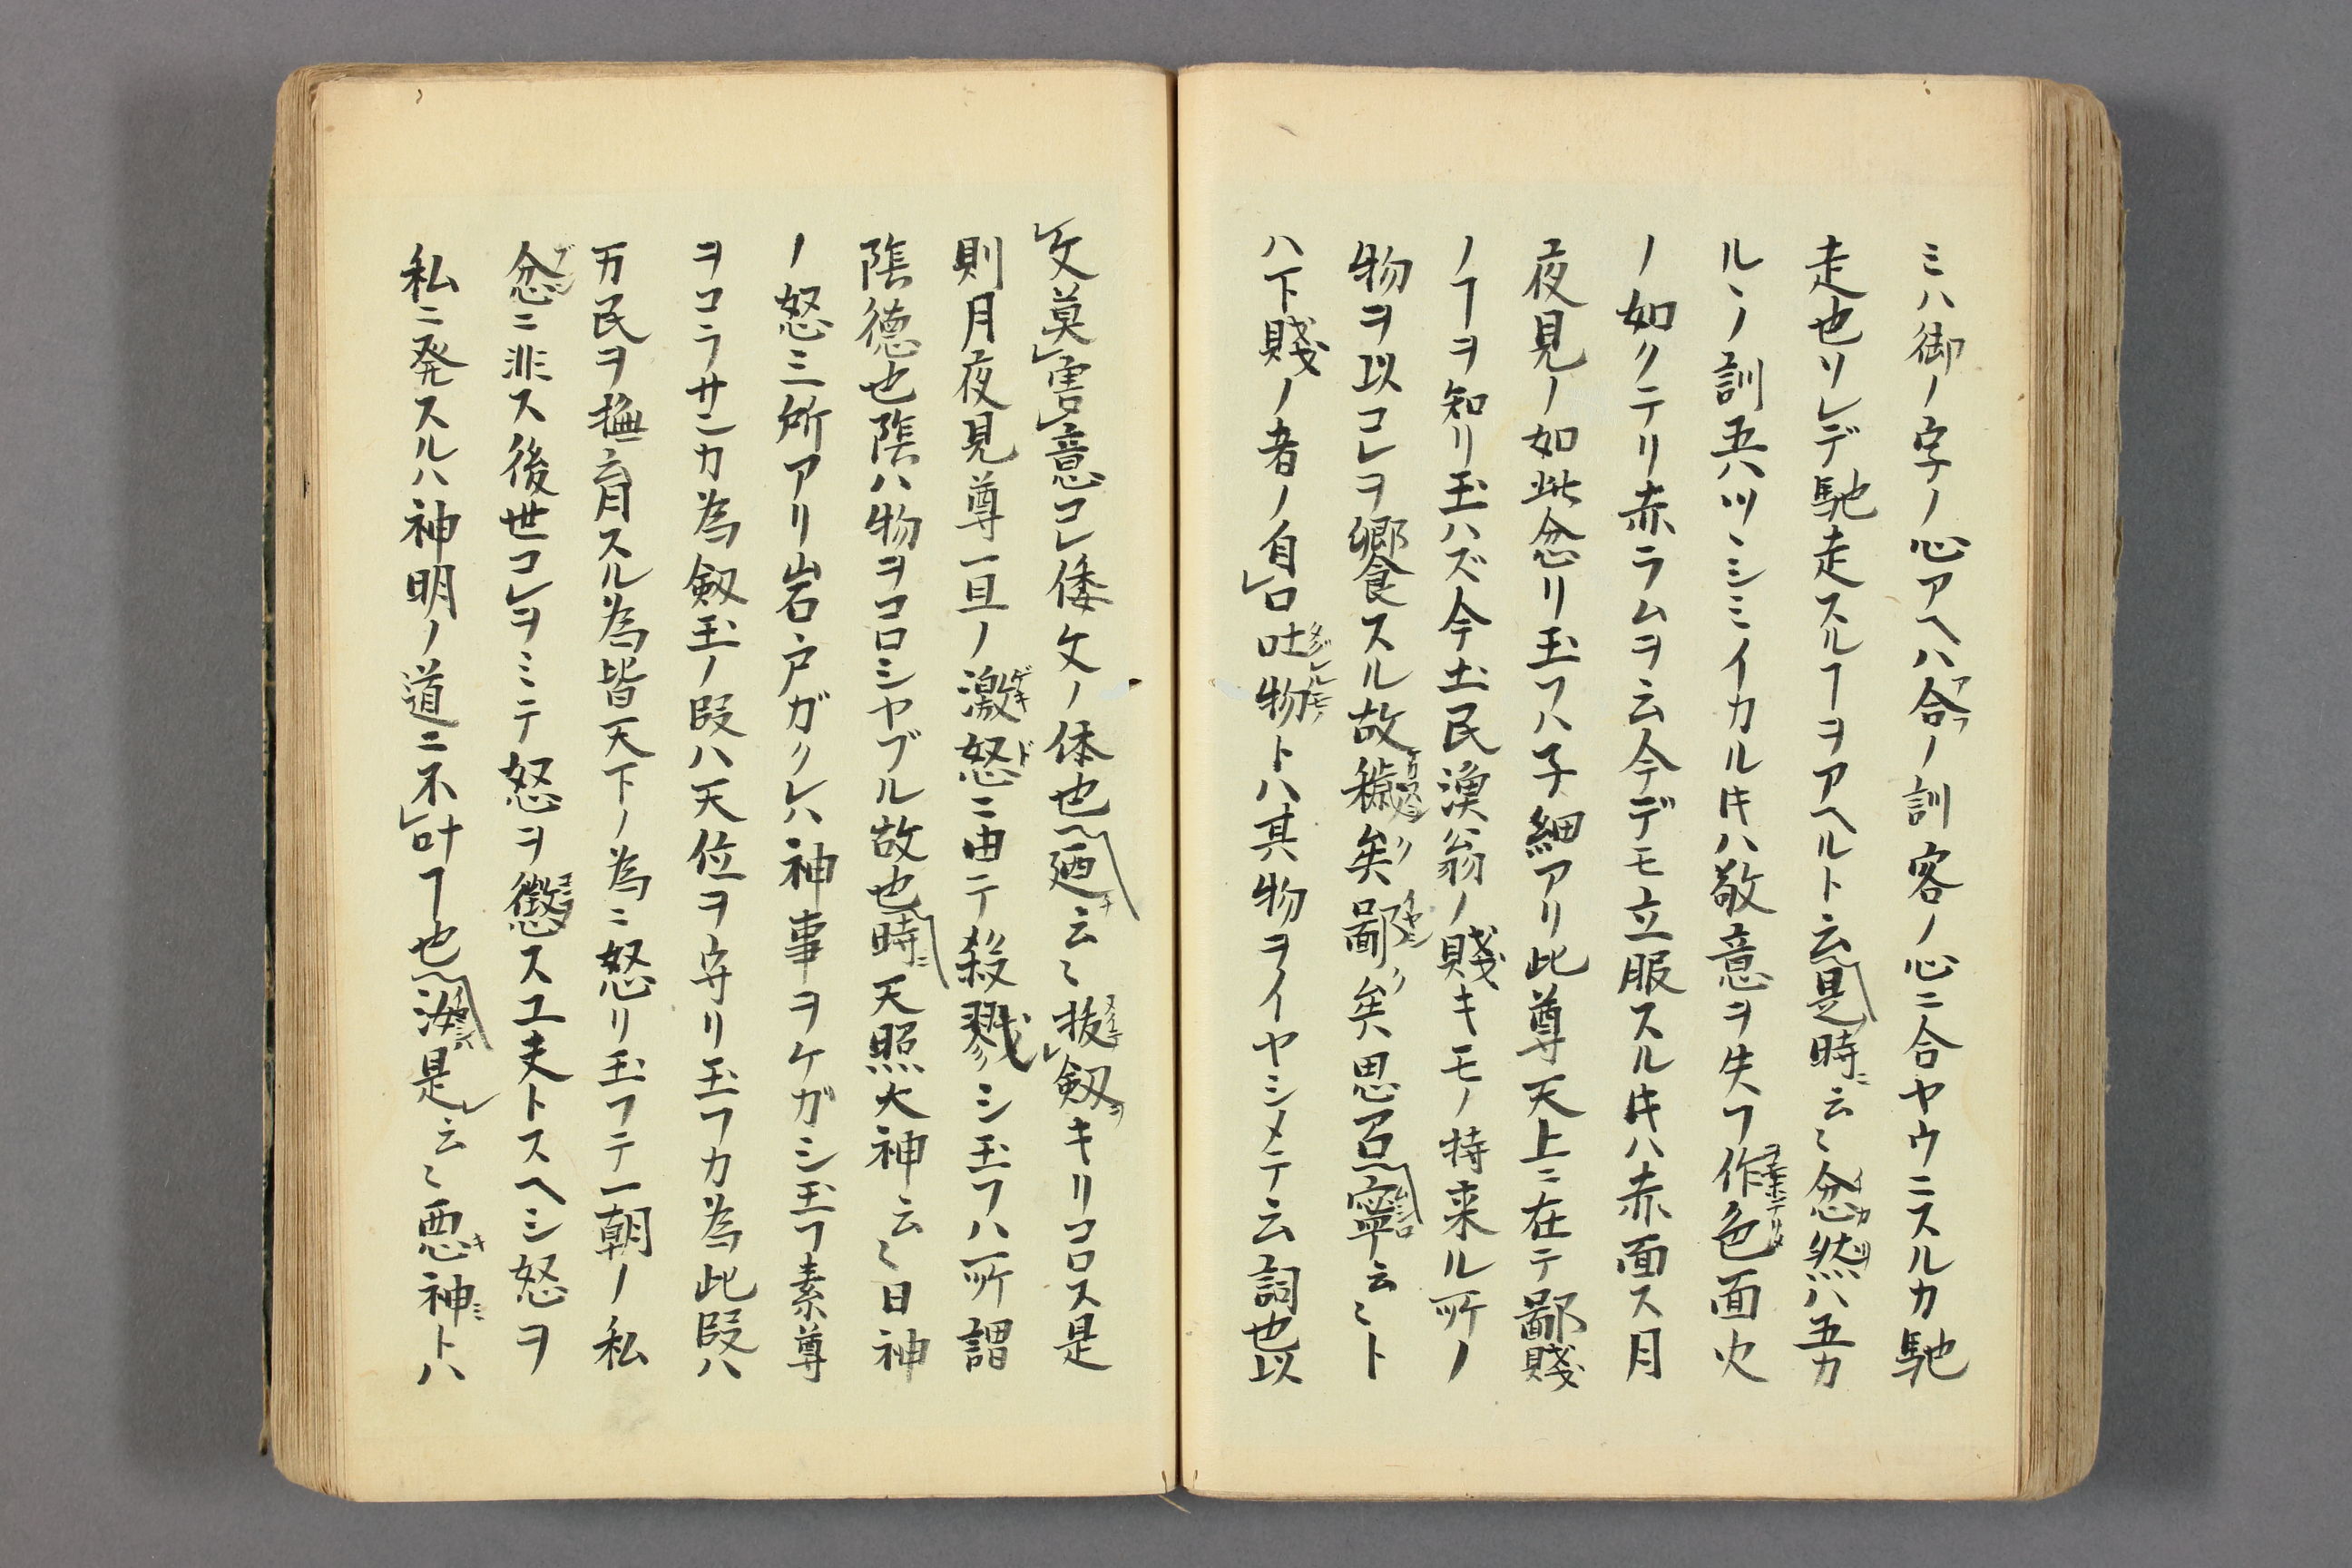 ミハ御ノ字ノ心アヘハ合ノ訓客ノ心ニ合ヤウニスルカ馳
走也ソレデ馳走スルヿヲアヘルト云是時ニ云々忿然ハ五カ
ルヽノ訓五ハツヽシミイカルキハ敬意ヲ失フ作色面火
ノ如クテリ赤ラムヲ云今デモ立服スルキハ赤面ス月
夜見ノ如此忿リ玉フハ子細アリ此尊天上ニ在テ鄙賤
ノヿヲ知リ玉ハズ今土民漁翁ノ賤キモノ持来ル所ノ
物ヲ以コレヲ饗スル故穢矣鄙矣思召寧云々ト
ハ下賤ノ者ノ自口吐物トハ其物ヲイヤシメテ云詞也以
文莫害意コレ倭文ノ体也廼云々抜剱キリコロス是
則月夜見尊一旦ノ激怒ニ由テ殺戮シ玉フハ所謂
陰徳也陰ハ物ヲコロシヤブル故也時ニ天照大神云々日神
ノ怒三所アリ岩戸ガクレハ神事ヲケガシ玉フ素尊
ヲコラサンカ為剱玉ノ段ハ天位ヲ守リ玉フカ為此段ハ
万民ヲ撫育スル為皆天下ノ為ニ怒リ玉フテ一朝ノ私
忿ニ非ス後世コレヲミテ怒ヲ懲ス工夫トスヘシ怒ヲ
私ニ発スルハ神明ノ道ニ不叶ヿ也汝是云々悪神トハ